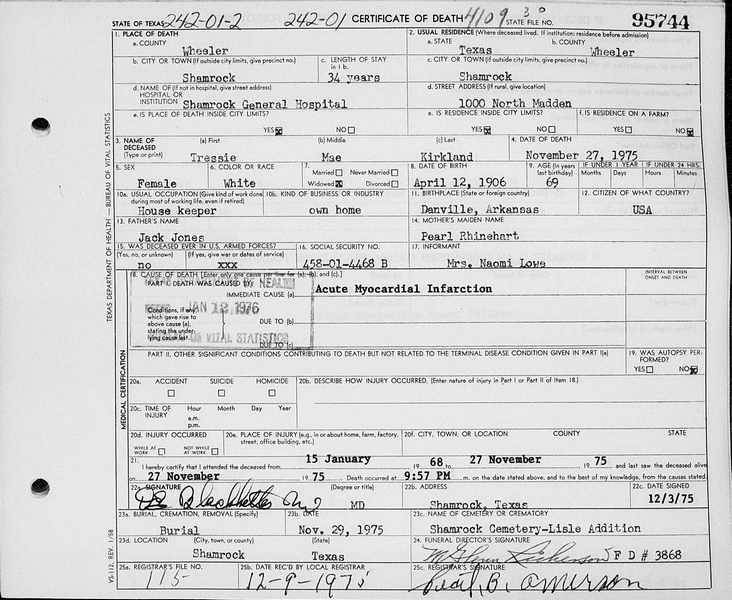 STATE OF TEXAS 242-01-2 242-01 CERTIFICATE OF DEATH 4109 30 STATE FILE NO. 95744
1. PLACE OF DEATH
a. COUNTY
Wheeler
2. USUAL RESIDENCE (Where deceased lived. If institution: residence before admission)
a. STATE b. COUNTY
Texas Wheeler
b. CITY OR TOWN (If outside city limits, give precinct no.) c. LENGTH OF STAY in 1 b.
Shamrock 34 years
c. CITY OR TOWN (If outside city limits, give precinct no.)
Shamrock
d. NAME OF (If not in hospital, give street address)
HOSPITAL OR
INSTITUTION Shamrock General Hospital
d. STREET ADDRESS (If rural, give location)
1000 North Madden
e. IS PLACE OF DEATH INSIDE CITY LIMITS?
YES NO
e. IS RESIDENCE INSIDE CITY LIMITS? f. IS RESIDENCE ON A FARM?
YES NO YES NO
3. NAME OF DECEASED (Type or print) (a) First (b) Middle (c) Last 4. DATE OF DEATH
Tressie Mae Kirkland November 27, 1975
5. SEX 6. COLOR OR RACE 7. Married Never Married Widowed Divorced 8. DATE OF BIRTH 9. AGE (In years last birthday) IF UNDER 1 YEAR IF UNDER 24 HRS.
Months Days Hours Minutes
Female White April 12, 1906 69
10a. USUAL OCCUPATION (Give kind of work done during most of working life, even if retired) 10b. KIND OF BUSINESS OR INDUSTRY 11. BIRTHPLACE (State or foreign country) 12. CITIZEN OF WHAT COUNTRY?
House keeper own home Danville, Arkansas USA
13. FATHER'S NAME 14. MOTHER'S MAIDEN NAME
Jack Jones Pearl Rhinehart
15. WAS DECEASED EVER IN U.S. ARMED FORCES? 16. SOCIAL SECURITY NO. 17. INFORMANT
(Yes, no, or unknown) (If yes, give war or dates of service)
no xxx 458-01-4468 B Mrs. Naomi Lowe
18. CAUSE OF DEATH [Enter only one cause per line for (a), (b), and (c).] INTERVAL BETWEEN ONSET AND DEATH
PART I. DEATH WAS CAUSED BY:
IMMEDIATE CAUSE (a) Acute Myocardial Infarction
JAN 12 1976
Conditions, if any, which gave rise to above cause (a), stating the underlying cause last.
DUE TO (b)
VITAL STATISTICS
DUE TO (c)
PART II. OTHER SIGNIFICANT CONDITIONS CONTRIBUTING TO DEATH BUT NOT RELATED TO THE TERMINAL DISEASE CONDITION GIVEN IN PART I(a) 19. WAS AUTOPSY PERFORMED?
YES NO
20a. ACCIDENT SUICIDE HOMICIDE 20b. DESCRIBE HOW INJURY OCCURRED. (Enter nature of injury in Part I or Part II of Item 18.)
20c. TIME OF INJURY Hour Month Day Year
a.m.
p.m.
20d. INJURY OCCURRED 20e. PLACE OF INJURY (e.g., in or about home, farm, factory, street, office building, etc.) 20f. CITY, TOWN, OR LOCATION COUNTY STATE
WHILE AT WORK NOT WHILE AT WORK
21. I hereby certify that I attended the deceased from 15 January 19 68 to 27 November 19 75 and last saw the deceased alive
on 27 November 19 75 Death occurred at 9:57 PM m. on the date stated above, and to the best of my knowledge, from the causes stated.
22a. SIGNATURE (Degree or title) 22b. ADDRESS 22c. DATE SIGNED
MD Shamrock, Texas 12/3/75
23a. BURIAL, CREMATION, REMOVAL (Specify) 23b. DATE 23c. NAME OF CEMETERY OR CREMATORY
Burial Nov. 29, 1975 Shamrock Cemetery-Lisle Addition
23d. LOCATION (City, town, or county) (State) 24. FUNERAL DIRECTOR'S SIGNATURE
Shamrock Texas F D # 3868
25a. REGISTRAR'S FILE NO. 25b. DATE REC'D BY LOCAL REGISTRAR 25c. REGISTRAR'S SIGNATURE
115 12-9-1975
TEXAS DEPARTMENT OF HEALTH — BUREAU OF VITAL STATISTICS
MEDICAL CERTIFICATION
VS-112, REV. 1/58